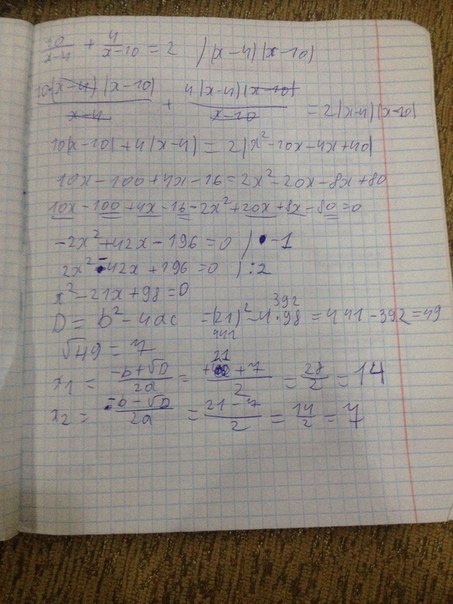 10/(x-4) + 4/(x-10) = 2 / (x-4)(x-10)
10(x-4)(x-10)/(x-4) + 4(x-4)(x-10)/(x-10) = 2(x-4)(x-10)
10(x-10)+4(x-4) = 2(x²-10x-4x+40)
10x-100+4x-16=2x²-20x-8x+80
10x-100+4x-16-2x²+20x+8x-80=0
-2x²+42x-196=0 / ·-1
2x²-42x+196=0 / :2
x²-21x+98=0
D = b²-4ac = (21)²-4·98 = 441-392=49
441 392
√49 = 7
x₁ = (-b+√D)/2a = (+21+7)/2 = 28/2 = 14
x₂ = (-b-√D)/2a = (21-7)/2 = 14/2 = 7